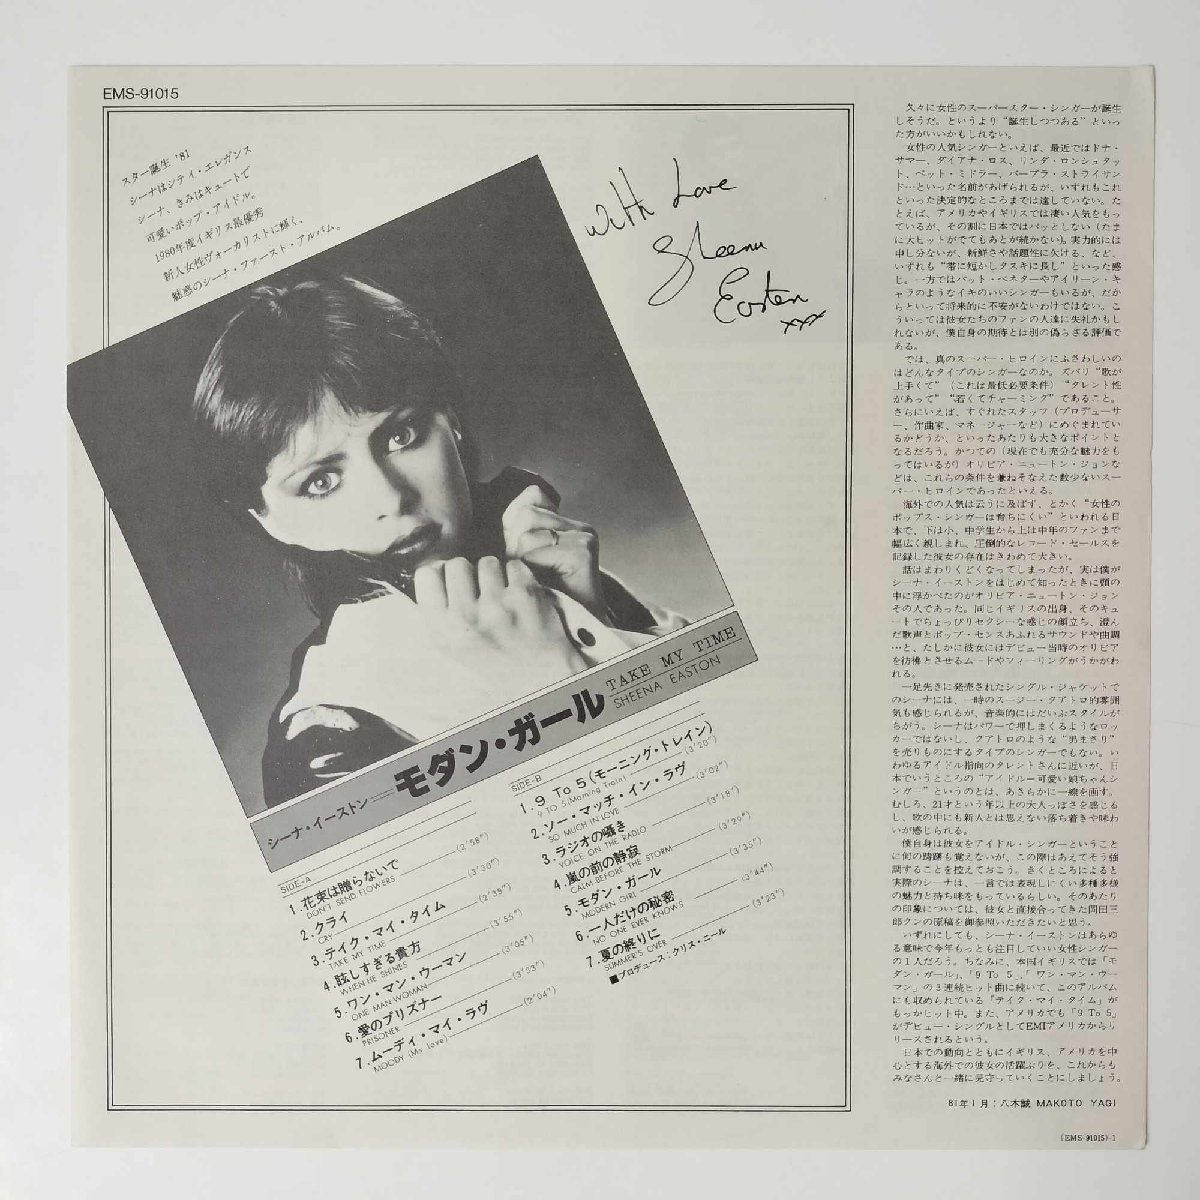 EMS-91015
スター誕生 '81
シーナはシティ・エレガンス
シーナ、きみはキュートで
可愛いポップ・アイドル。
1980年度イギリス最優秀
新人女性ヴォーカリストに輝く、
魅惑のシーナ・ファースト・アルバム。
With Love
Sheena
Easton
xxx
シーナ・イーストン＝モダン・ガール
TAKE MY TIME
SHEENA EASTON
SIDE-A
1. 花束は贈らないで (2'58")
DON'T SEND FLOWERS
2. クライ (3'30")
CRY
3. テイク・マイ・タイム (2'39")
TAKE MY TIME
4. 眩しすぎる貴方 (3'55")
WHEN HE SHINES
5. ワン・マン・ウーマン (3'05")
ONE MAN WOMAN
6. 愛のプリズナー (3'23")
PRISONER
7. ムーディ・マイ・ラヴ (2'04")
MOODY (My Love)
SIDE-B
1. 9 To 5 (モーニング・トレイン) (3'20")
9 TO 5 (Morning Train)
2. ソー・マッチ・イン・ラヴ (3'02")
SO MUCH IN LOVE
3. ラジオの囁き (3'18")
VOICE ON THE RADIO
4. 嵐の前の静寂 (3'29")
CALM BEFORE THE STORM
5. モダン・ガール (3'35")
MODERN GIRL
6. 一人だけの秘密 (2'44")
NO ONE EVER KNOWS
7. 夏の終りに (3'23")
SUMMER'S OVER
■プロデュース：クリス・ニール
久々に女性のスーパースター・シンガーが誕生
しそうだ。というより“誕生しつつある”といっ
た方がいいかもしれない。
女性の人気シンガーといえば、最近ではドナ・
サマー、ダイアナ・ロス、リンダ・ロンシュタッ
ト、ベット・ミドラー、バーブラ・ストライサン
ド…といった名前があげられるが、いずれもこれ
といった決定的なところまでは達していない。た
とえば、アメリカやイギリスでは凄い人気をもっ
ているが、その割に日本ではパッとしない（たま
に大ヒットがでてもあとが続かない）。実力的には
申し分ないが、新鮮さや話題性に欠ける、など、
いずれも“帯に短かしタスキに長し”といった感
じ。一方ではパット・ベネターやアイリーン・キ
ャラのようなイキのいいシンガーもいるが、だか
らといって将来的に不安がないわけではない。こ
ういっては彼女たちのファンの人達に失礼かもし
れないが、僕自身の期待とは別の偽らざる評価で
ある。
では、真のスーパー・ヒロインにふさわしいの
はどんなタイプのシンガーなのか。ズバリ“歌が
上手くて”（これは最低必要条件）“タレント性
があって”“若くてチャーミング”であること。
さらにいえば、すぐれたスタッフ（プロデューサ
ー、作曲家、マネージャーなど）にめぐまれてい
るかどうか、といったあたりも大きなポイントと
なるだろう。かつての（現在でも充分な魅力をも
ってはいるが）オリビア・ニュートン・ジョンな
どは、これらの条件を兼ねそなえた数少ないスー
パー・ヒロインであったといえる。
海外での人気は云うに及ばず、とかく“女性の
ポップス・シンガーは育ちにくい”といわれる日
本で、下は小、中学生から上は中年のファンまで
幅広く親しまれ、圧倒的なレコード・セールスを
記録した彼女の存在はきわめて大きい。
話はまわりくどくなってしまったが、実は僕が
シーナ・イーストンをはじめて知ったときに頭の
中に浮かべたのがオリビア・ニュートン・ジョン
その人であった。同じイギリスの出身、そのキュ
ートでちょっぴりセクシーな感じの顔立ち、澄ん
だ歌声とポップ・センスあふれるサウンドや曲調
…と、たしかに彼女にはデビュー当時のオリビア
を彷彿とさせるムードやフィーリングがうかがわ
れる。
一足先きに発売されたシングル・ジャケットで
のシーナには、一時のスージー・クアトロ的雰囲
気も感じられるが、音楽的にはだいぶスタイルが
ちがう。シーナはパワーで押しまくるようなロッ
カーではないし、クアトロのような“男まさり”
を売りものにするタイプのシンガーでもない。い
わゆるアイドル指向のタレントさんに近いが、日
本でいうところの“アイドル＝可愛い娘ちゃんシ
ンガー”というのとは、あきらかに一線を画す。
むしろ、21才という年以上の大人っぽさを感じる
し、歌の中にも新人とは思えない落ち着きや味わ
いが感じられる。
僕自身は彼女をアイドル・シンガーということ
に何の躊躇も覚えないが、この際はあえてそう強
調することを控えておこう。きくところによると
実際のシーナは、一言では表現しにくい多種多様
の魅力と持ち味をもっているらしい。そのあたり
の印象については、彼女と直接合ってきた岡田三
郎クンの原稿を御参照いただきたいと思う。
いずれにしても、シーナ・イーストンはあらゆ
る意味で今年もっとも注目していい女性シンガー
の1人だろう。ちなみに、本国イギリスでは「モ
ダン・ガール」、「9 To 5」、「ワン・マン・ウー
マン」の3連続ヒット曲に続いて、このアルバム
にも収められている「テイク・マイ・タイム」が
もっかヒット中。また、アメリカでも「9 To 5」
がデビュー・シングルとしてEMIアメリカからリ
リースされるという。
日本での動向とともにイギリス、アメリカを中
心とする海外での彼女の活躍ぶりを、これからも
みなさんと一緒に見守っていくことにしましょう。
81年1月：八木誠 MAKOTO YAGI
(EMS-91015)-1